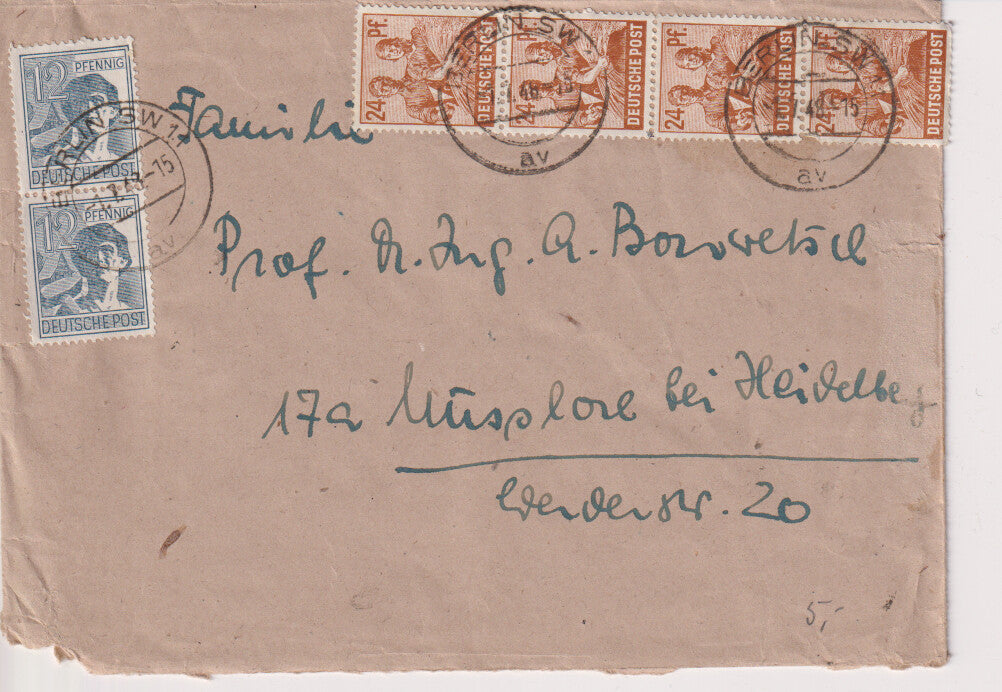 12 PFENNIG
DEUTSCHE POST
12 PFENNIG
DEUTSCHE POST
24 Pf. DEUTSCHE POST
24 DEUTSCHE POST
24 Pf. DEUTSCHE POST
24 DEUTSCHE POST
BERLIN SW 11
av
BERLIN SW 11
av
BERLIN SW 11
av
Familie
Prof. Dr. Ing. A. Borowetsch
17a bei Heidelberg
Werderstr. 20
5,-